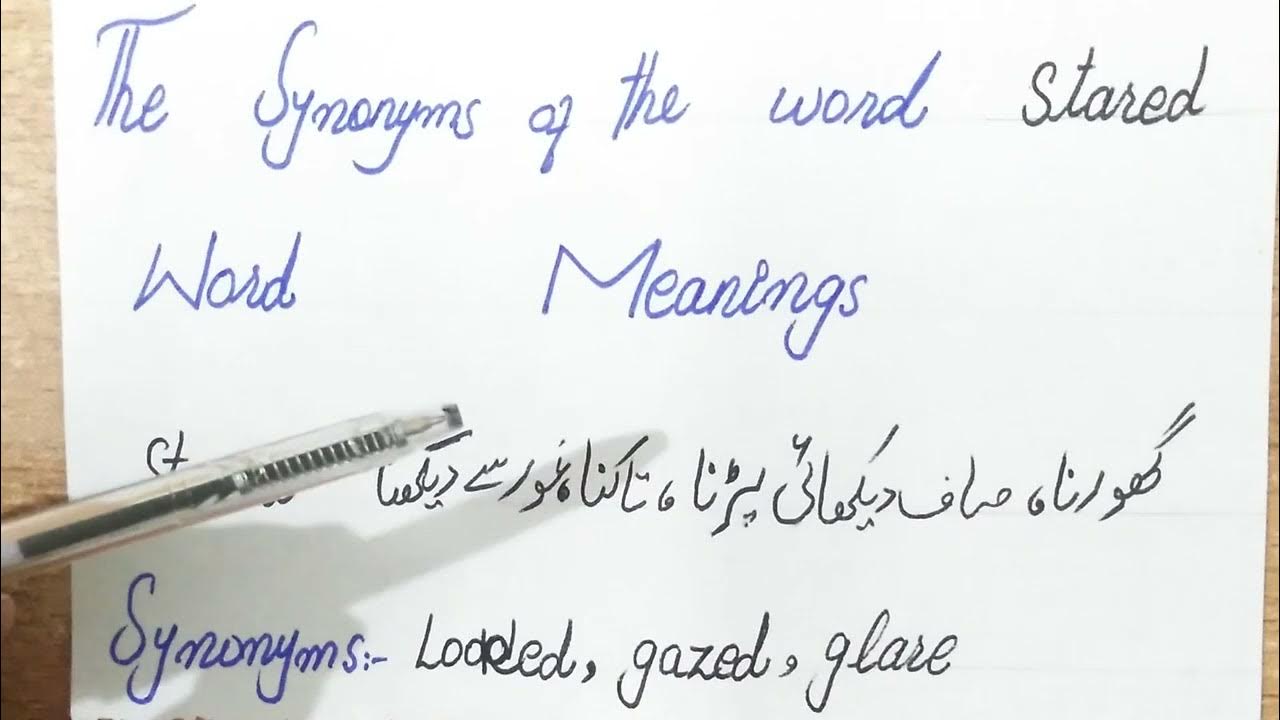 The Synonyms of the word Stared
Word Meanings
گھورنا، صاف دیکھائی پڑنا، تاکنا، غور سے دیکھنا
Synonyms:- Looked, gazed, glare